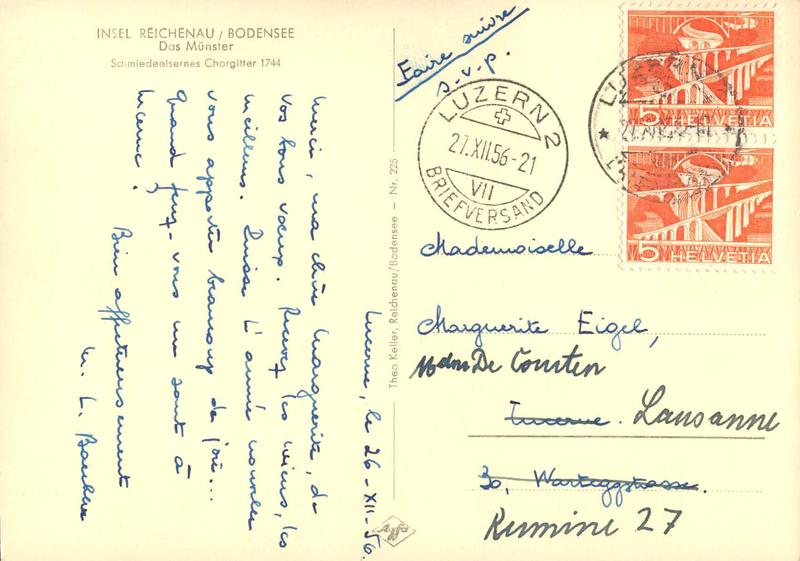 INSEL REICHENAU / BODENSEE
Das Münster
Schmiedeeisernes Chorgitter 1744
Lucerne, le 26-XII-56.
Merci, ma chère Marguerite, de
vos bons vœux. Recevez les miens, les
meilleurs. Puisse l'année nouvelle
vous apporter beaucoup de joie...
Quand ferez-vous un saut à
Lucerne?
Bien affectueusement
M. L.
Theo Keller, Reichenau/Bodensee — Nr. 225
Agfa
Faire suivre
s.v.p.
LUZERN 2
27.XII.56-21
VII
BRIEFVERSAND
5 HELVETIA
5 HELVETIA
Mademoiselle
Marguerite Eigel,
De Courten
Lucerne. Lausanne
30, Warteggstrasse.
Rumine 27